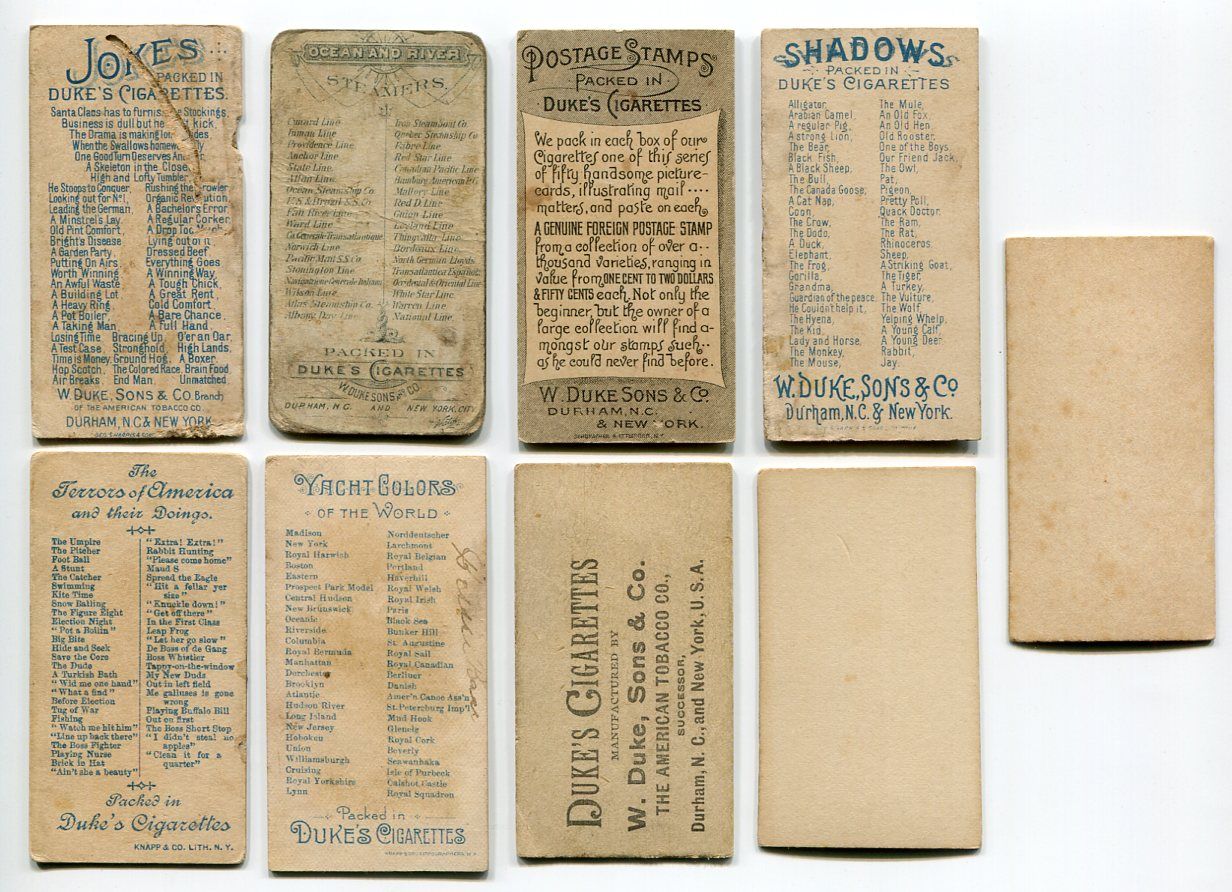 JOKES
PACKED IN
DUKE'S CIGARETTES.
Santa Claus has to furnish Stockings,
Business is dull but he kick,
The Drama is making
When the Swallows
One Good Turn Deserves
A Skeleton in the Close
High and Lofty Tumbler,
He Stoops to Conquer, Rushing the Growler
Looking out for No1, Organic
Leading the German, A Bachelor's Error
A Minstrel's Lay, A Regular Corker
Old Pint Comfort, A Drop Too
Bright's Disease Lying out of it
A Garden Party, Dressed Beef
Putting On Airs Everything Goes
Worth Winning A Winning Way
An Awful Waste A Tough Chick,
A Building Lot, A Great Rent,
A Heavy Ring Cold Comfort
A Pot Boiler, A Bare Chance,
A Taking Man, A Full Hand,
Losing Time Bracing Up, O'er an Oar,
A Test Case, Stronghold, High Lands,
Time is Money, Ground Hog, A Boxer,
Hop Scotch, The Colored Race, Brain Food
Air Breaks, End Man, Unmatched
W. DUKE, SONS & CO. Branch
OF THE AMERICAN TOBACCO CO.
DURHAM, N.C. & NEW YORK
OCEAN AND RIVER
STEAMERS.
Cunard Line
Inman Line
Providence Line
Anchor Line
State Line
Allan Line
Ocean Steamship Co.
U.S. & Brazil S.S. Co
Fall River Line
Ward Line
Cie Generale Transatlantique
Norwich Line
Pacific Mail S.S. Co
Stonington Line
Navigazione Generale Italiana
Wilson Line
Atlas Steamship Co.
Albany Day Line
Iron Steam Boat Co
Quebec Steamship Co
Fabre Line
Red Star Line
Canadian Pacific Line
Hamburg American
Mallory Line
Red D. Line
Guion Line
Leyland Line
Thingvalla Line
Bordeaux Line
North German Lloyds
Transatlantica Española
Occidental & Oriental Line
White Star Line
Warren Line
National Line.
PACKED IN
DUKE'S CIGARETTES
W. DUKE SONS & CO.
DURHAM, N.C. AND NEW YORK CITY
POSTAGE STAMPS
PACKED IN
DUKE'S CIGARETTES
We pack in each box of our
Cigarettes one of this series
of fifty handsome picture-
cards, illustrating mail ....
matters, and paste on each
A GENUINE FOREIGN POSTAGE STAMP
from a collection of over a..
thousand varieties, ranging in
value from ONE CENT TO TWO DOLLARS
& FIFTY CENTS each. Not only the
beginner, but the owner of a
large collection will find a-
mongst our stamps such..
as he could never find before.
W. DUKE SONS & CO.
DURHAM, N.C.
& NEW YORK.
SHADOWS
PACKED IN
DUKE'S CIGARETTES
Alligator,
Arabian Camel,
A regular Pig,
A strong Lion,
The Bear,
Black Fish,
A Black Sheep,
The Bull,
The Canada Goose,
A Cat Nap,
Coon,
The Crow,
The Dodo,
A Duck,
Elephant,
The Frog,
Gorilla,
Grandma,
Guardian of the peace,
He Couldn't help it,
The Hyena,
The Kid,
Lady and Horse,
The Monkey,
The Mouse,
The Mule,
An Old Fox,
An Old Hen,
Old Rooster,
One of the Boys,
Our Friend Jack,
The Owl,
Pat,
Pigeon,
Pretty Poll,
Quack Doctor,
The Ram,
The Rat,
Rhinoceros,
Sheep,
A Striking Goat,
The Tiger,
A Turkey,
The Vulture,
The Wolf,
Yelping Whelp,
A Young Calf,
A Young Deer
Rabbit,
Jay.
W. DUKE, SONS & CO.
Durham, N.C. & New York.
The
Terrors of America
and their Doings.
The Umpire
The Pitcher
Foot Ball
A Stunt
The Catcher
Swimming
Kite Time
Snow Balling
The Figure Eight
Election Night
"Pot a Boilin"
Big Bite
Hide and Seek
Save the Core
The Dude
A Turkish Bath
"Wid me one hand"
"What a find"
Before Election
Tug of War
Fishing
"Watch me hit him"
"Line up back there"
The Boss Fighter
Playing Nurse
Brick in Hat
"Ain't she a beauty"
"Extra! Extra!"
Rabbit Hunting
"Please come home"
Maud S
Spread the Eagle
"Hit a fellar yer
size"
"Knuckle down!"
"Get off there"
In the First Class
Leap Frog
"Let her go slow"
De Boss of de Gang
Boss Whistler
Tappy-on-the-window
My New Duds
Out in left field
Me galluses is gone
wrong
Playing Buffalo Bill
Out on first
The Boss Short Stop
"I didn't steal no
apples"
"Clean it for a
quarter"
Packed in
Duke's Cigarettes
KNAPP & CO. LITH. N. Y.
YACHT COLORS
OF THE WORLD
Madison
New York
Royal Harwich
Boston
Eastern
Prospect Park Model
Central Hudson
New Brunswick
Oceanic
Riverside
Columbia
Royal Bermuda
Manhattan
Dorchester
Brooklyn
Atlantic
Hudson River
Long Island
New Jersey
Hoboken
Union
Williamsburgh
Cruising
Royal Yorkshire
Lynn
Norddeutscher
Larchmont
Royal Belgian
Portland
Haverhill
Royal Welsh
Royal Irish
Paris
Black Sea
Bunker Hill
St. Augustine
Royal Sail
Royal Canadian
Berliner
Danish
Amer'n Canoe Ass'n
St. Petersburg Imp'l
Mud Hook
Glenelg
Royal Cork
Beverly
Seawanhaka
Isle of Purbeck
Calshot Castle
Royal Squadron
Packed in
DUKE'S CIGARETTES
DUKE'S CIGARETTES
MANUFACTURED BY
W. Duke, Sons & Co.
THE AMERICAN TOBACCO CO.,
SUCCESSOR,
Durham, N. C., and New York, U.S.A.